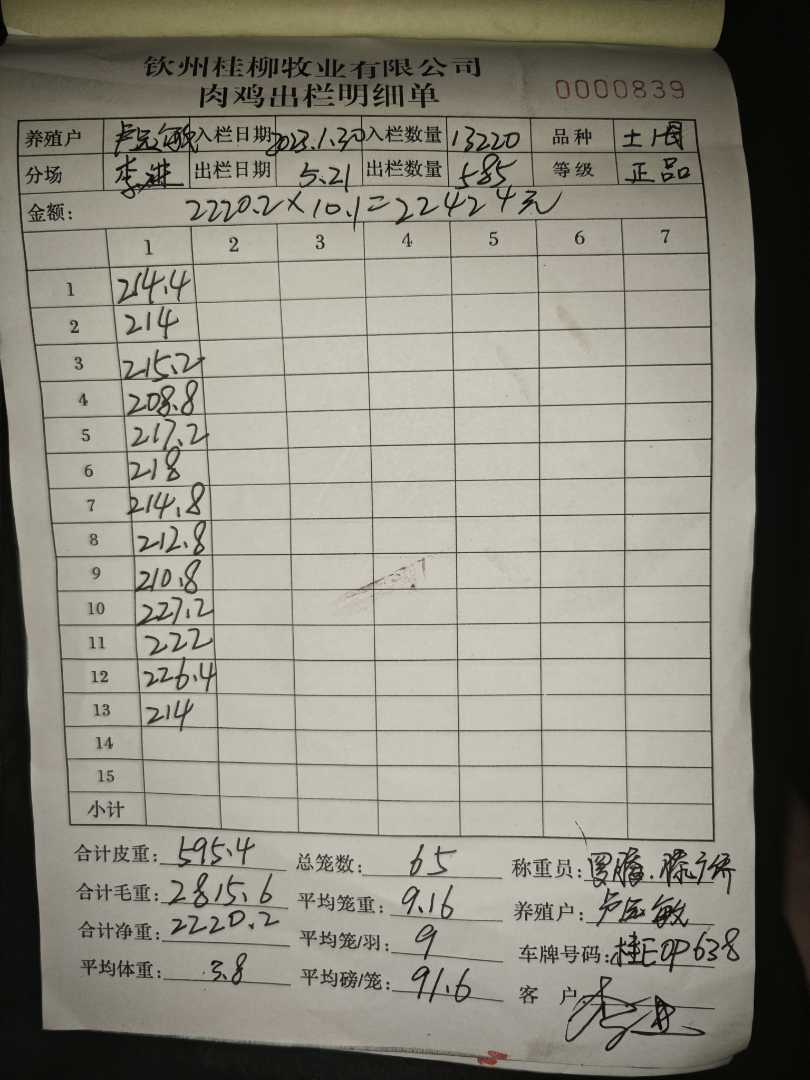 钦州桂柳牧业有限公司
肉鸡出栏明细单 0000839
养殖户 卢 敏 入栏日期 2023.1.30 入栏数量 13220 品种 土
分场 李进 出栏日期 5.21 出栏数量 585 等级 正品
金额: 2220.2×10.1=22424元
1 2 3 4 5 6 7
1 214.4
2 214
3 215.2
4 208.8
5 217.2
6 218
7 214.8
8 212.8
9 210.8
10 227.2
11 222
12 226.4
13 214
14
15
小计
合计皮重: 595.4 总笼数: 65 称重员:
合计毛重: 2815.6 平均笼重: 9.16 养殖户: 卢 敏
合计净重: 2220.2 平均笼/羽: 9 车牌号码: 桂E0P638
平均体重: 3.8 平均磅/笼: 91.6 客 户: 李进